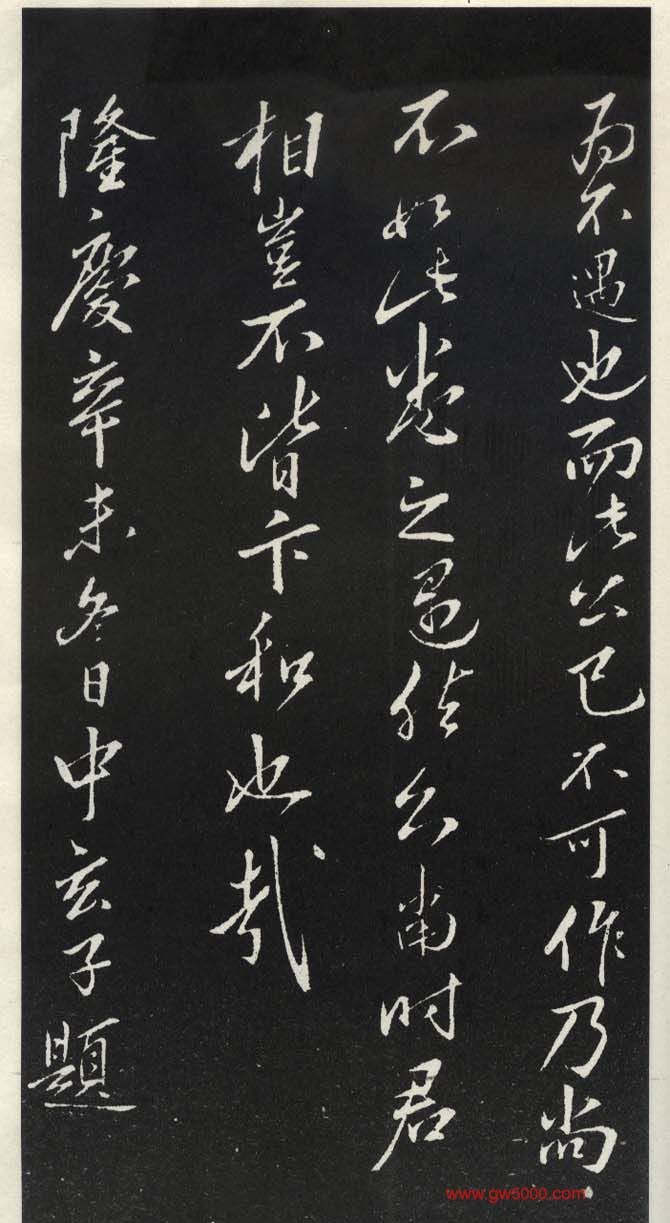 為不遇也而此公已不可作乃尚
不如此卷之遇然公當時君
相豈不皆卞和也哉
隆慶辛未冬日中玄子題
www.gw5000.com